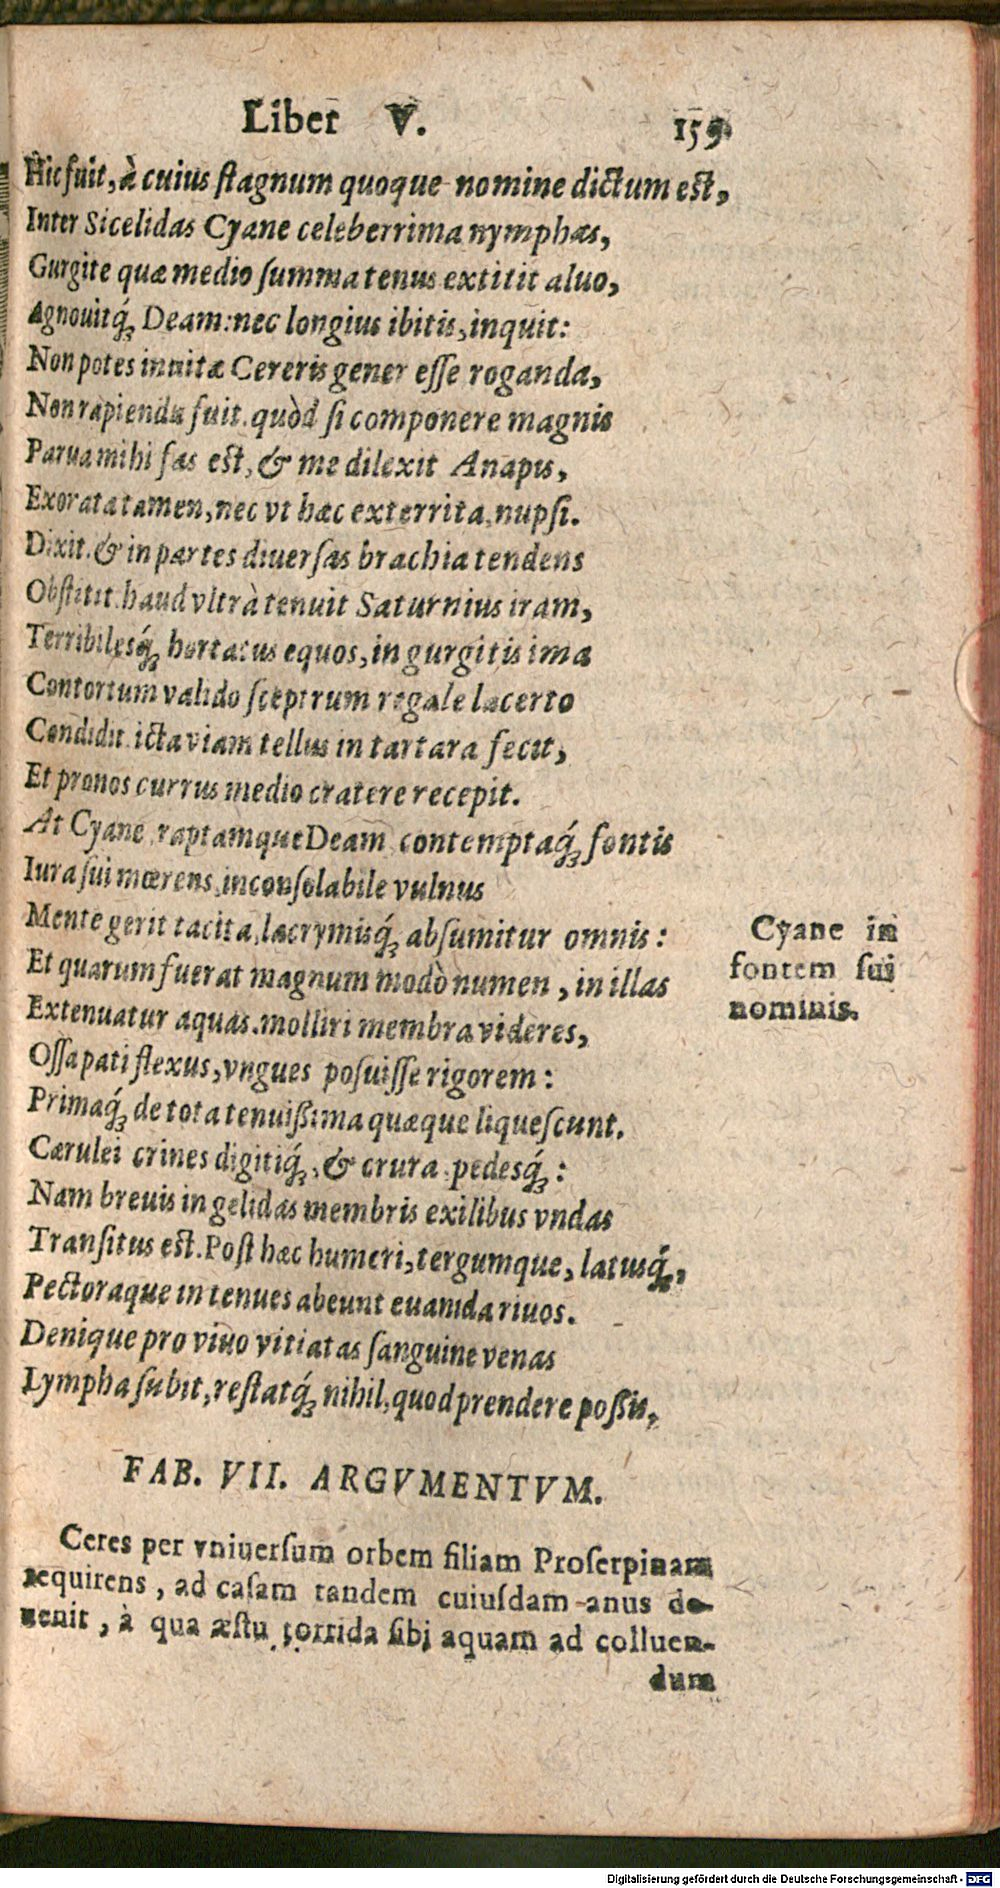 Liber V. 159
Hic fuit, à cuius stagnum quoque nomine dictum est,
Inter Sicelidas Cyane celeberrima nymphas,
Gurgite quæ medio summa tenus extitit aluo,
Agnouitq́; Deam: nec longius ibitis, inquit:
Non potes inuitæ Cereris gener esse roganda,
Non rapienda fuit. quòd si componere magnis
Parua mihi fas est, & me dilexit Anapis,
Exorata tamen, nec vt hæc exterrita, nupsi.
Dixit. & in partes diuersas brachia tendens
Obstitit. haud vltrà tenuit Saturnius iram,
Terribilesq́; hortatus equos, in gurgitis ima
Contortum valido sceptrum regale lacerto
Condidit. icta viam tellus in tartara fecit,
Et pronos currus medio cratere recepit.
At Cyane, raptamque Deam contemptaq́; fontis
Iura sui mœrens, inconsolabile vulnus
Mente gerit tacita, lacrymisq́; absumitur omnis:
Et quarum fuerat magnum modò numen, in illas
Extenuatur aquas. molliri membra videres,
Ossa pati flexus, vngues posuisse rigorem:
Primaq́; de tota tenuißima quæque liquescunt.
Cærulei crines digitiq́;, & crura, pedesq́;:
Nam breuis in gelidas membris exilibus vndas
Transitus est. Post hæc humeri, tergumque, latusq́;,
Pectoraque in tenues abeunt euanida riuos.
Denique pro viuo vitiatas sanguine venas
Lympha subit, restatq́; nihil, quod prendere poßis,
Cyane in
fontem sui
nominis.
FAB. VII. ARGVMENTVM.
Ceres per vniuersum orbem filiam Proserpinam
requirens, ad casam tandem cuiusdam anus de-
uenit, à qua æstu torrida sibi aquam ad colluen-
dum
Digitalisierung gefördert durch die Deutsche Forschungsgemeinschaft - DFG